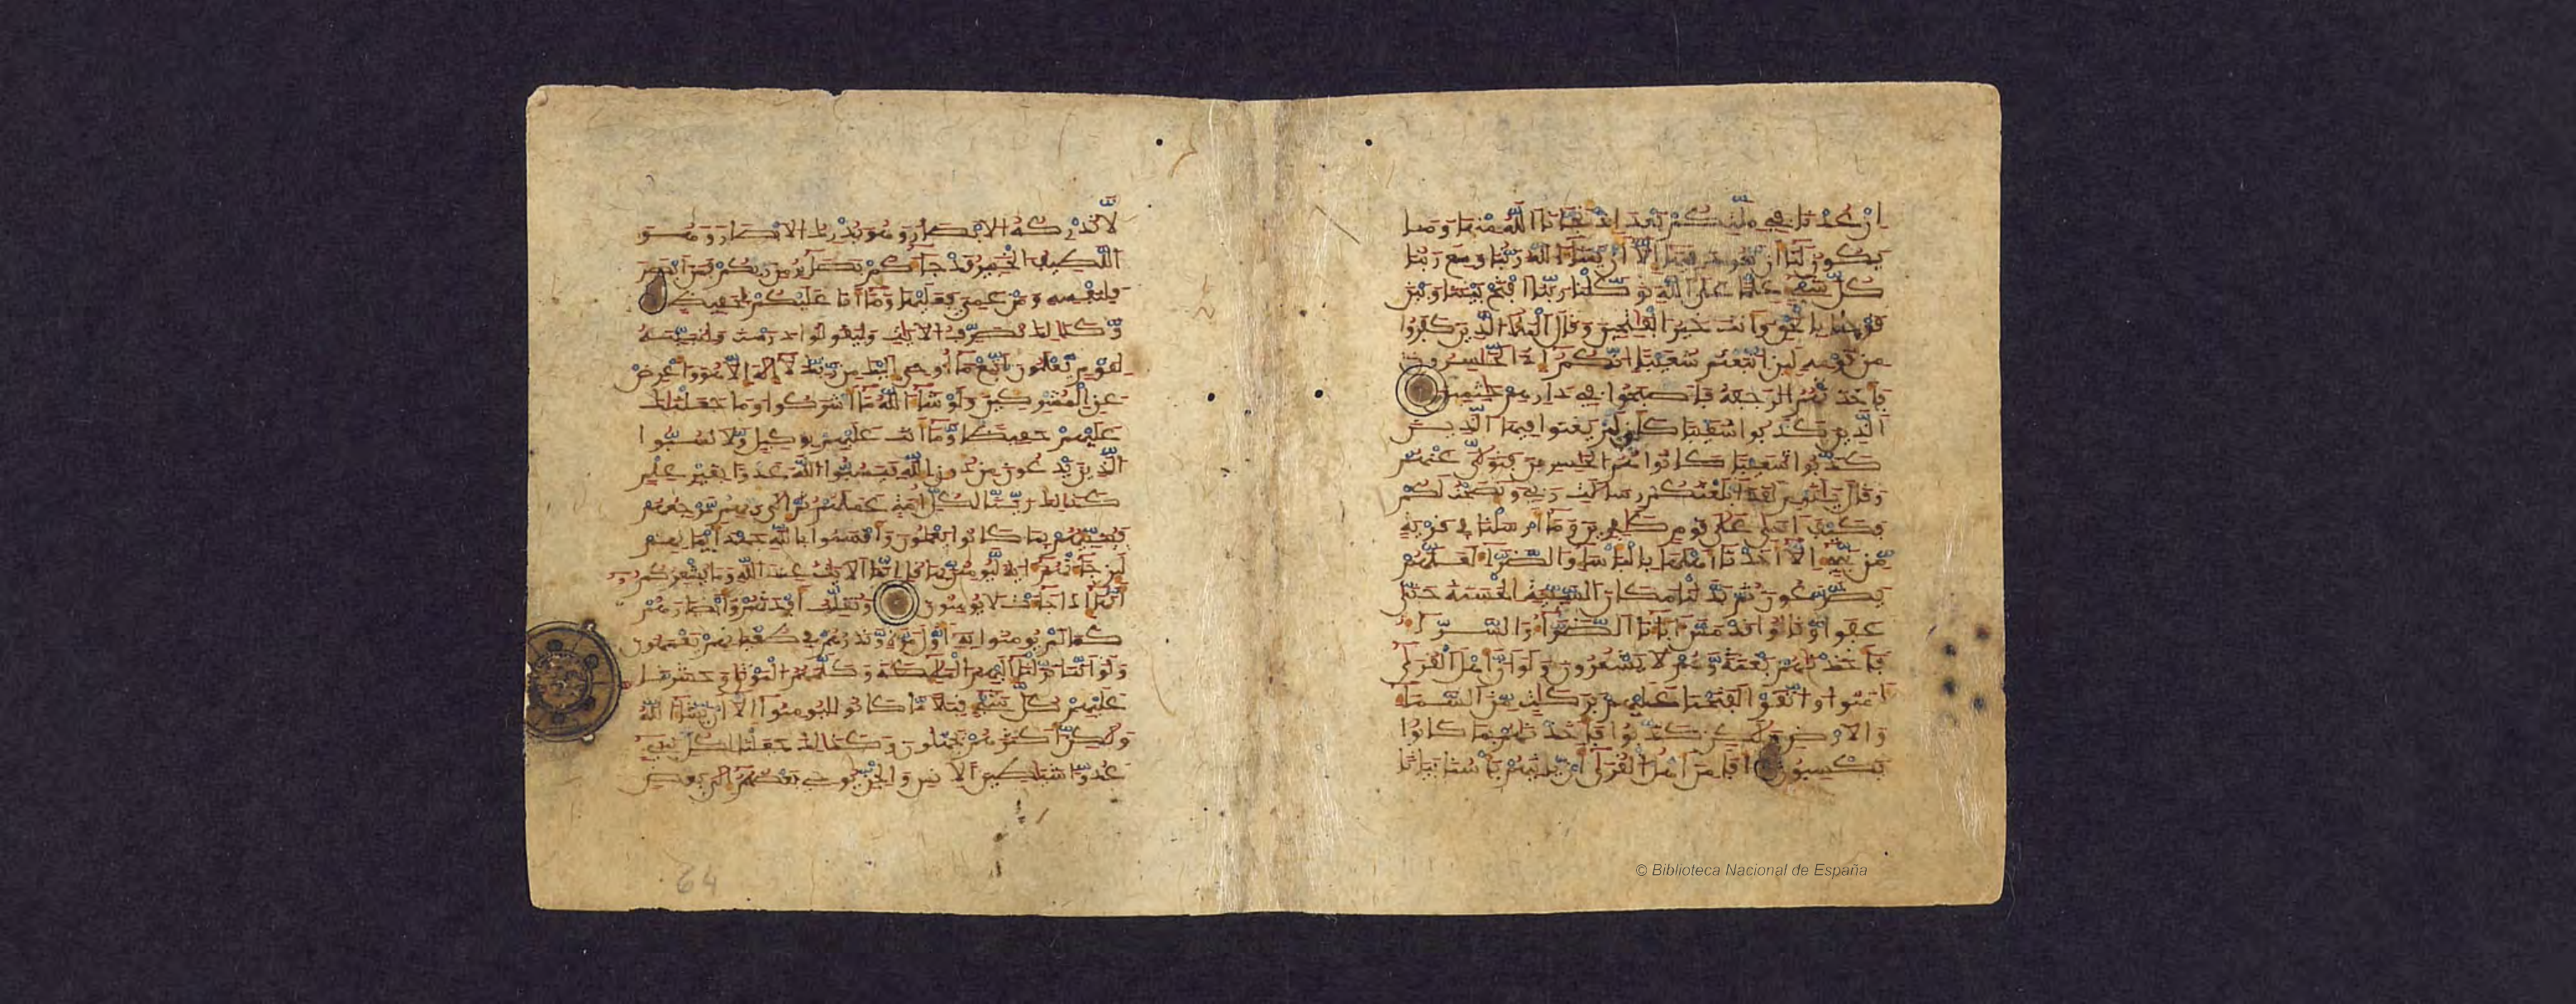 ان عدنا في ملتكم بعد اذ نجانا الله منها وما
يكون لنا ان نعود فيها الا ان يشا الله ربنا وسع ربنا
كل شي علما على الله توكلنا ربنا افتح بيننا وبين
قومنا بالحق وانت خير الفتحين وقال الملا الذين كفروا
من قومه لين اتبعتم شعيبا انكم اذا لخسرون
فاخذتهم الرجفة فاصبحوا في دارهم جثمين
الذين كذبوا شعيبا كان لم يغنوا فيها الذين
كذبوا شعيبا كانوا هم الخسرين فتولى عنهم
وقال يقوم لقد ابلغتكم رسلت ربي ونصحت لكم
فكيف اسى على قوم كفرين وما ارسلنا في قرية
من نبي الا اخذنا اهلها بالباسا والضرا لعلهم
يضرعون ثم بدلنا مكان السيية الحسنة حتى
عفوا وقالوا قد مس ابانا الضرا والسرا
فاخذنهم بغتة وهم لا يشعرون ولو ان اهل القرى
امنوا واتقوا لفتحنا عليهم بركت من السما
والارض ولكن كذبوا فاخذنهم بما كانوا
يكسبون افامن اهل القرى ان ياتيهم باسنا بيتا
لا تدركه الابصر وهو يدرك الابصر وهو
اللطيف الخبير قد جاكم بصاير من ربكم فمن ابصر
فلنفسه ومن عمي فعليها وما انا عليكم بحفيظ
وكذلك نصرف الايت وليقولوا درست ولنبينه
لقوم يعلمون اتبع ما اوحي اليك من ربك لا اله الا هو واعرض
عن المشركين ولو شا الله ما اشركوا وما جعلنك
عليهم حفيظا وما انت عليهم بوكيل ولا تسبوا
الذين يدعون من دون الله فيسبوا الله عدوا بغير علم
كذلك زينا لكل امة عملهم ثم الى ربهم مرجعهم
فينبيهم بما كانوا يعملون واقسموا بالله جهد ايمنهم
لين جاتهم اية ليومنن بها قل انما الايت عند الله وما يشعركم
انها اذا جات لا يومنون ونقلب افيدتهم وابصرهم
كما لم يومنوا به اول مرة ونذرهم في طغينهم يعمهون
ولو اننا نزلنا اليهم المليكة وكلمهم الموتى وحشرنا
عليهم كل شي قبلا ما كانوا ليومنوا الا ان يشا الله
ولكن اكثرهم يجهلون وكذلك جعلنا لكل نبي
عدوا شيطين الانس والجن يوحي بعضهم الى بعض
64
© Biblioteca Nacional de España